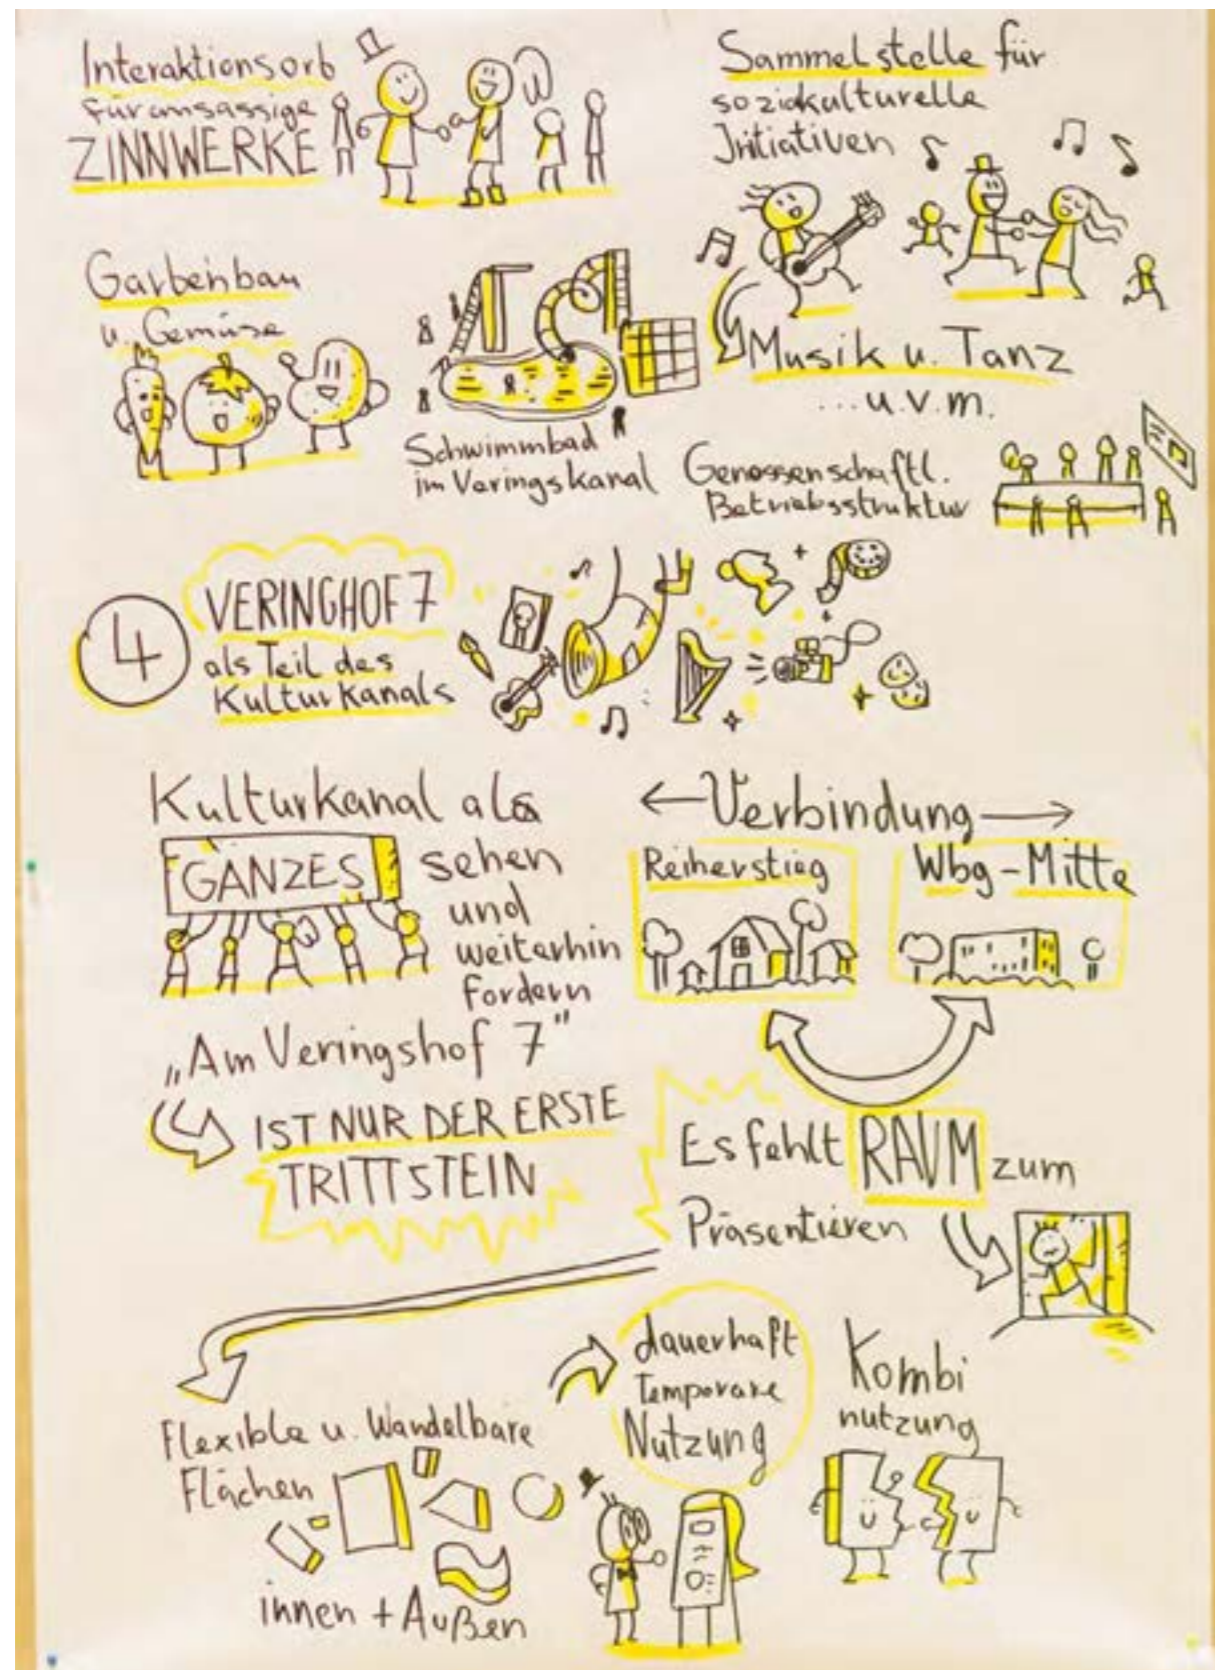 Interaktionsorb
für ansässige
ZINNWERKE
Sammelstelle für
soziokulturelle
Initiativen
Musik u. Tanz
...u.v.m.
Gartenbau
u. Gemüse
Schwimmbad
im Veringskanal
Genossenschaftl.
Betriebsstruktur
4
VERINGHOF 7
als Teil des
Kulturkanals
Kulturkanal als
GANZES
sehen
und
weiterhin
fordern
„Am Veringshof 7"
IST NUR DER ERSTE
TRITTSTEIN
←Verbindung→
Reiherstieg
Wbg-Mitte
Es fehlt RAUM zum
Präsentieren
Flexible u. Wandelbare
Flächen
innen + Außen
dauerhaft
Temporäre
Nutzung
Kombi
nutzung